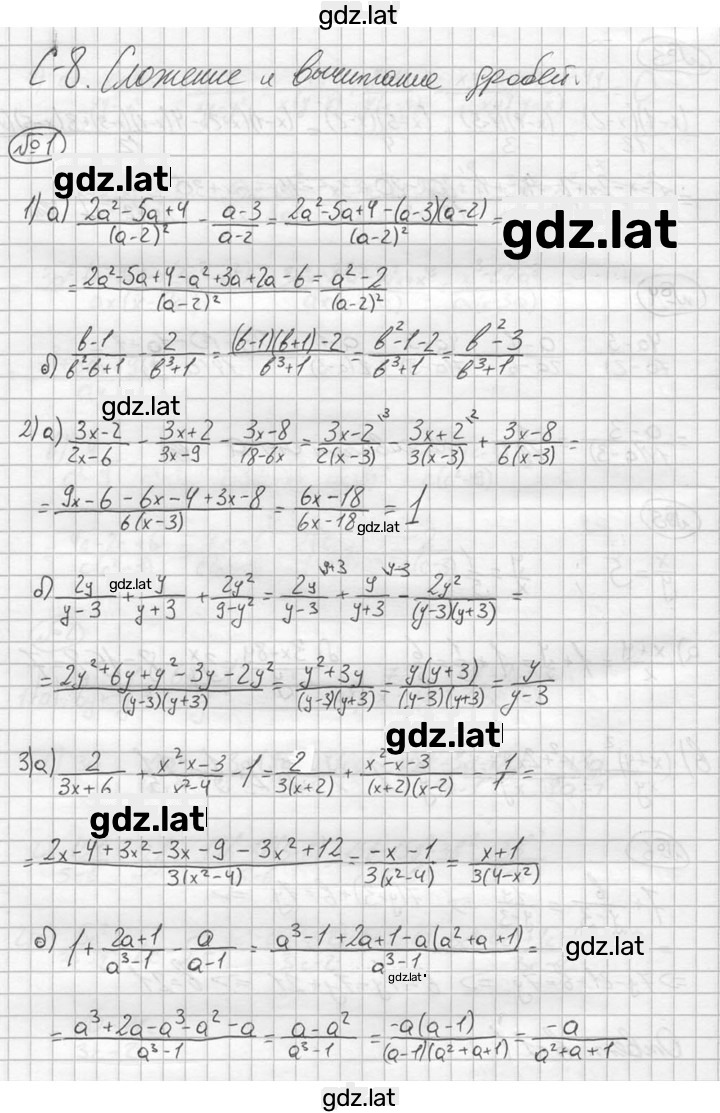 gdz.lat
С-8. Сложение и вычитание дробей.
№1
gdz.lat
1) а) (2a² - 5a + 4)/(a-2)² - (a-3)/(a-2) = (2a² - 5a + 4 - (a-3)(a-2))/(a-2)² =
gdz.lat
= (2a² - 5a + 4 - a² + 3a + 2a - 6)/(a-2)² = (a² - 2)/(a-2)²
б) (в-1)/(в² - в + 1) - 2/(в³ + 1) = ((в-1)(в+1) - 2)/(в³ + 1) = (в² - 1 - 2)/(в³ + 1) = (в² - 3)/(в³ + 1)
gdz.lat
2) а) (3x-2)/(2x-6) - (3x+2)/(3x-9) - (3x-8)/(18-6x) = (3x-2)\3/2(x-3) - (3x+2)\2/3(x-3) + (3x-8)/6(x-3) =
= (9x - 6 - 6x - 4 + 3x - 8)/6(x-3) = (6x-18)/(6x-18) = 1
gdz.lat
б) 2y/(y-3) + y/(y+3) + 2y²/(9-y²) = 2y\y+3/(y-3) + y\y-3/(y+3) - 2y²/(y-3)(y+3) =
gdz.lat
= (2y² + 6y + y² - 3y - 2y²)/(y-3)(y+3) = (y² + 3y)/(y-3)(y+3) = y(y+3)/(y-3)(y+3) = y/(y-3)
gdz.lat
3) а) 2/(3x+6) + (x² - x - 3)/(x² - 4) - 1 = 2/3(x+2) + (x² - x - 3)/(x+2)(x-2) - 1/1 =
gdz.lat
= (2x - 4 + 3x² - 3x - 9 - 3x² + 12)/3(x² - 4) = (-x - 1)/3(x² - 4) = (x+1)/3(4 - x²)
б) 1 + (2a+1)/(a³ - 1) - a/(a-1) = (a³ - 1 + 2a + 1 - a(a² + a + 1))/(a³ - 1) =
gdz.lat
gdz.lat
= (a³ + 2a - a³ - a² - a)/(a³ - 1) = (a - a²)/(a³ - 1) = -a(a-1)/(a-1)(a² + a + 1) = -a/(a² + a + 1)
gdz.lat